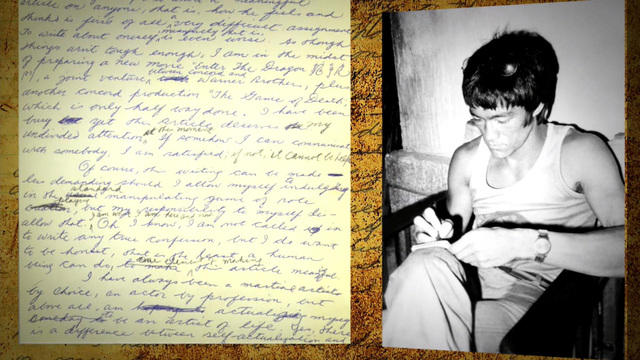 article on anyone, that is, how he feels and
thinks is first of all a very difficult assignment
To write about oneself is even worse As though
things aren't tough enough, I am in the midst
of preparing a new movie "Enter The Dragon
a joint venture between Concord and Warner Brothers, plus
another concord production "The Game of Death,"
which is only half way done. I have been
busy yet this article deserves my
undivided attention, at this moment if somehow I can communicate
with somebody, I am satisfied; if not, it cannot be helped
Of course, this writing can be made
less demanding should I allow myself indulging
in the standard manipulating game of role
playing, but my responsibility to myself dis-
allow that. Oh I know, I am not called upon
to write any true confession, but I do want
to be honest, that is the least a human
being can do, this article meaningful
I have always been a martial artist
by choice, an actor by profession, but
above all, am actualizing myself
to be an artist of life. Yes, there
is a difference between self-actualization and